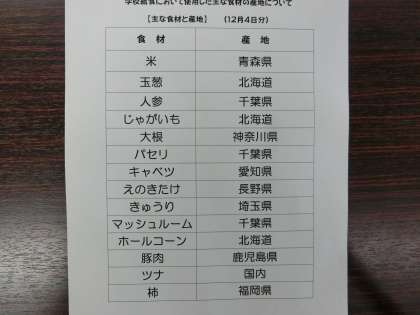 学校給食において使用した主な食材の産地について
【主な食材と産地】 (12月4日分)
食材 産地
米 青森県
玉葱 北海道
人参 千葉県
じゃがいも 北海道
大根 神奈川県
パセリ 千葉県
キャベツ 愛知県
えのきたけ 長野県
きゅうり 埼玉県
マッシュルーム 千葉県
ホールコーン 北海道
豚肉 鹿児島県
ツナ 国内
柿 福岡県